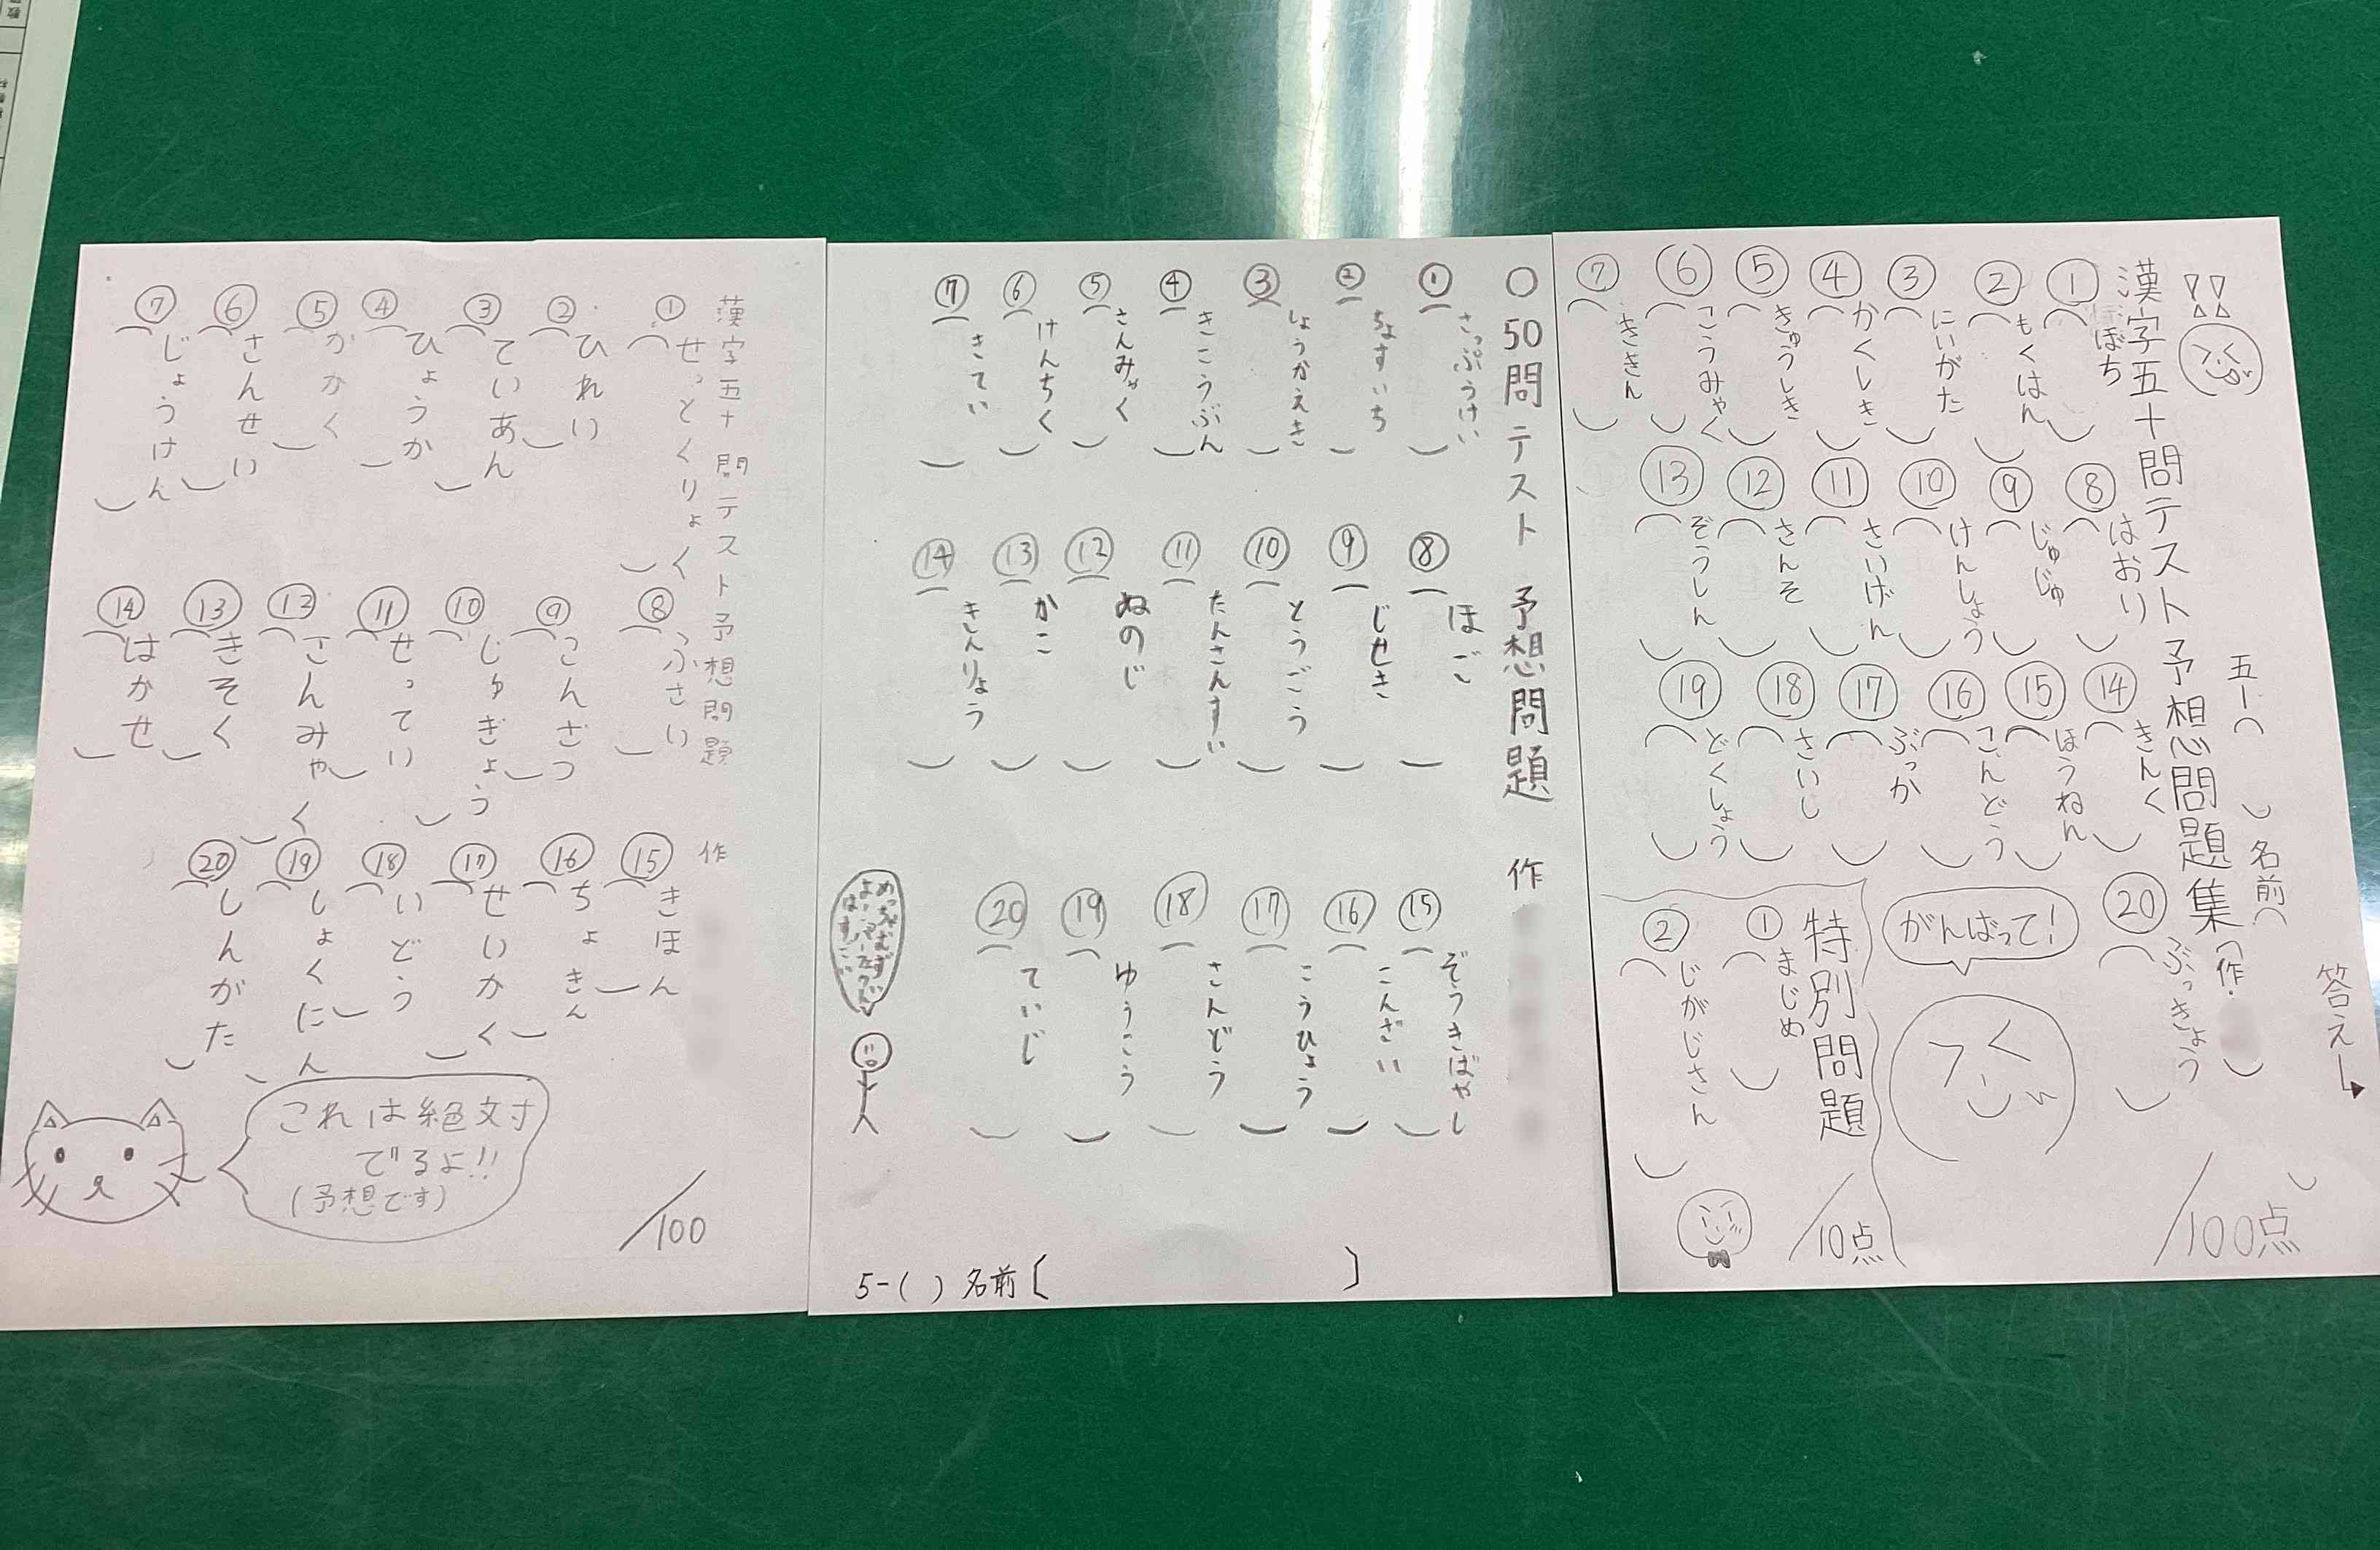 漢字五十問テスト予想問題集(作. )
五一( ) 名前( )
答え→
①ぼち
②もくはん
③にいがた
④かくしき
⑤きゅうしき
⑥こうみゃく
⑦ききん
⑧はおり
⑨じゅじゅ
⑩けんしょう
⑪さいげん
⑫さんそ
⑬ぞうしん
⑭きんく
⑮ほうねん
⑯こんどう
⑰ぶっか
⑱さいし
⑲どくしょう
⑳ぶっきょう
がんばって!
/100点
特別問題
①まじめ
②じがじさん
/10点
○50問テスト 予想問題 作
①さっぷうけい
②ちょすいち
③しょうかえき
④きこうぶん
⑤さんみゃく
⑥けんちく
⑦きてい
⑧ほご
⑨じせき
⑩とうごう
⑪たんさんすい
⑫ぬのじ
⑬かこ
⑭きんりょう
⑮ぞうきばやし
⑯こんざい
⑰こうひょう
⑱さんどう
⑲ゆうこう
⑳ていじ
5-( ) 名前〔 〕
漢字五十問テスト予想問題 作
①せっとくりょく
②ひれい
③ていあん
④ひょうか
⑤かかく
⑥さんせい
⑦じょうけん
⑧ふさい
⑨こんざつ
⑩じゅぎょう
⑪せってい
⑫さんみゃく
⑬きそく
⑭はかせ
⑮きほん
⑯ちょきん
⑰せいかく
⑱いどう
⑲しょくにん
⑳しんがた
これは絶対
でるよ!!
(予想です)
/100